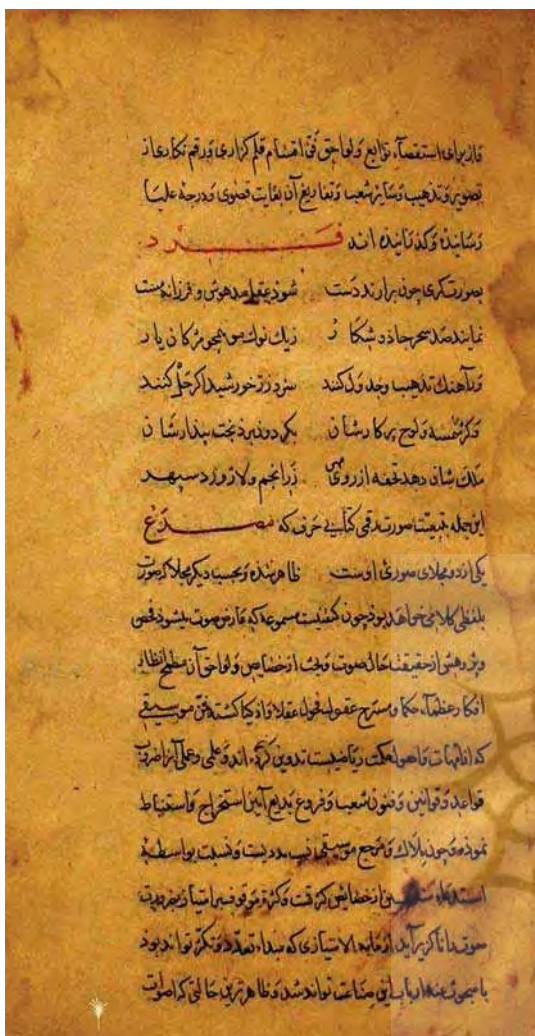 و از برای استقصاء توابع و لواحق فن اقسام قلم گزاری و رقم نگاری از
تصویر و تذهیب و سایر شعب و تفاریع آن بغایت قصوی و درجهٔ علیا
رسانیده و گذرانیده اند فرد
بصورت گری چون برارند دست شود عقل مدهوش و فرزانه مست
نمایند صد سحر جادو شکار ز یک نوک مو همچو مژگان یار
ور آهنک تذهیب و جدول کنند سزد زر خورشید اگر حل کنند
و گر شمسه و لوح پرکارشان بگردد پذیرد بخت بیدارشان
ملک شان دهد تحفه از روی مهر زر انجم و لاژورد سپهر
این جمله بتبعیت صورت رقمی کتابی حرف که مصرع
یکی از دو مجلای صوری اوست ظاهر شده و بحسب دیگر مجلا که صورت
بلفظی کلامی خواهد بود چون کیفیت مسموعه که عارض صوت میشود فحص
و پژوهش از حقیقت حال صوت و بحث از خصایص و لواحق آن مطمح انظار
افکار عظماء حکما و مسرح عقول فحول عقلا و اذکیا گشته فن موسیقی
که از امهات و اصول حکمت ریاضیست تدوین کرده اند و علمی و عملی آنرا ضروب
قواعد و قوانین و فنون شعب و فروع بدیع آیین استخراج و استنباط
نموده و چون ملاک و مرجع موسیقی نسب عددیست و نسبت بواسطهٔ
از خصایص کثرت و کثرة موقوف بر امتیاز
ناگزیر آید از مابه الامتیازی که مبداء تعدد و تکثر تواند بود
تا مبحوث عنه ارباب این صناعت تواند شد و ظاهر ترین حالتی که اصوات